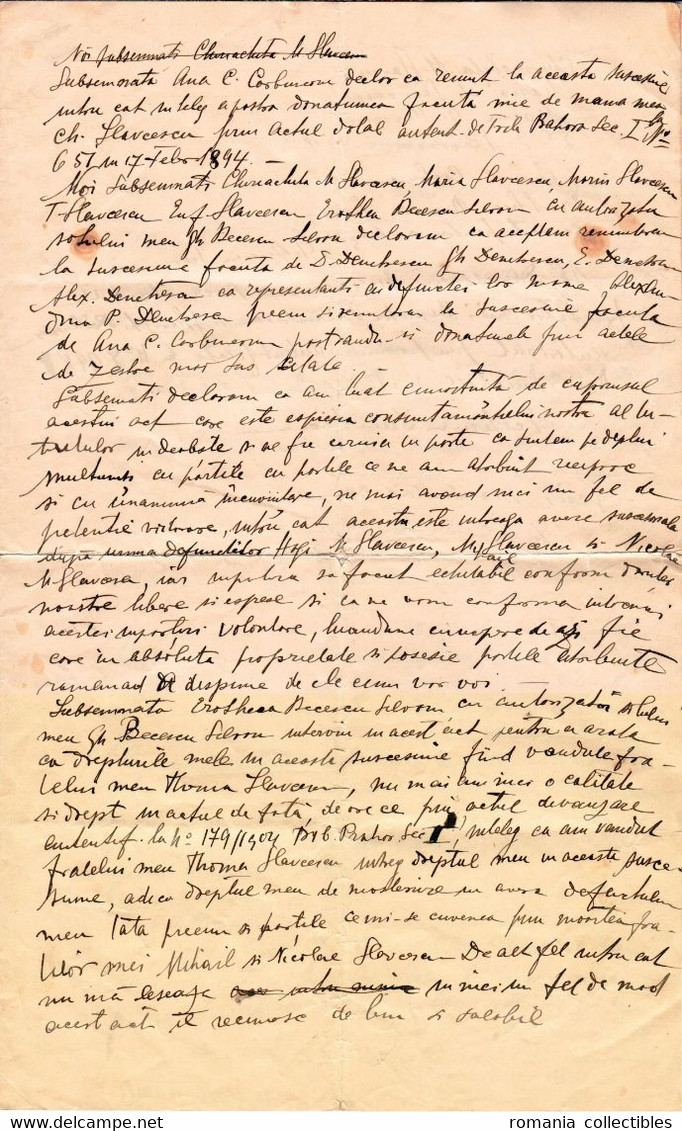 Noi subsemnati Chiriachita M Slavcescu
Subsemnata Ana C. Corbureanu declar ca renunt la aceasta succesiune
intru cat inteleg a pastra donatiunea facuta mie de mama mea
Ch. Slavcescu prin actul dotal autent. de Trib Prahova Sec. I No
651 in 17 Febr 1894. —
Noi Subsemnati Chiriachita M Slavcescu, Maria Slavcescu, Slavcescu
T Slavcescu Slavcescu Erothea Becescu Silvan cu autorizatia
sotului meu Gh Becescu Silvan declaram ca acceptam renuntarea
la succesiune facuta de D. Demetrescu Gh Demetrescu, E. Demetrescu
Alex. Demetrescu ca representanti ai defunctei lor mame Alexan-
drina P. Demetrescu precum si renuntarea la succesiune facuta
de Ana C. Corbureanu pastrandu-si donatiunile prin actele
de zestre mai sus citate —
Subsemnati declaram ca am luat cunostintă de cuprinsul
acestui act care este expresia consimtamântului nostru al tu-
tulor in deobste si al fie caruia in parte ca suntem pe deplin
multumiti cu părtile cu partile ce ne am atribuit reciproc
si cu unanimă încuviintare, ne mai avand nici un fel de
petentie viitoare, intru cat aceasta este intreaga avere succesorala
după urma defunctilor Hagi M Slavcescu, Mihail Slavcescu si Nicolae
M Slavcescu, iar s'a facut echitabil conform vointei
noastre libere si exprese si ca ne vom conforma intocmai
acestei impărtiri voluntare, luandune cu incepere de azi fie
care in absoluta proprietate si posesie partile atribuite
ramanand a dispune de ele cum vor voi —
Subsemnata Erothea Becescu Silvan cu autorizatia sotului
meu Gh Becescu Silvan intervin in acest act pentru a arata
ca drepturile mele in aceasta succesiune fiind vandute fra-
telui meu Thoma Slavcescu, nu mai am nici o calitate
si drept in actul de fată, de ore ce prin actul de vanzare
autentif. la No 179/1904 Trib. Prahova Sec I, inteleg ca am vandut
fratelui meu Thoma Slavcescu intreg dreptul meu in aceasta succe-
siune, adica dreptul meu de mostenire in averea defunctului
meu Tată precum si partile ce mi-se cuvenea prin moartea fra-
tilor mei Mihail si Nicolae Slavcescu De alt fel intru cat
nu mă leseaza intru nimic in nici un fel de mod
acest act il recunosc de bun si valabil
romania collectibles